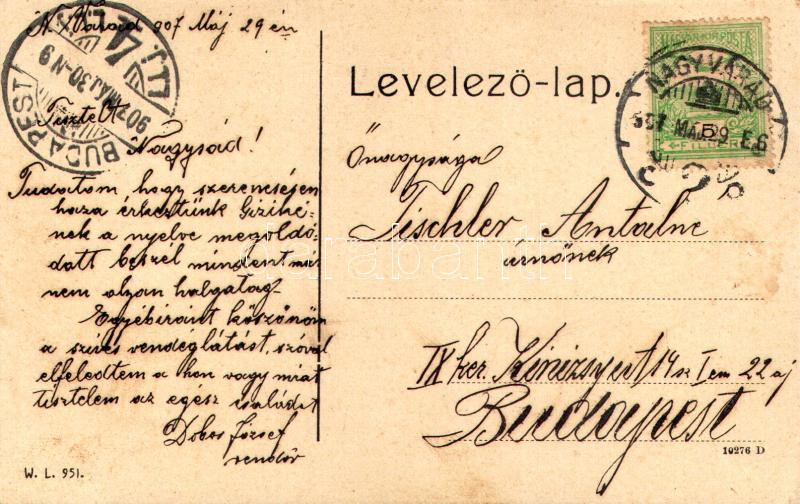 N. Várad 907 Máj 29 én
Tisztelt
Nagysád!
Tudatom hogy szerencsésen
haza érkeztünk Gizike-
nek a nyelve megoldó-
dott beszél mindent már
nem olyan halgatag
Egyébiránt köszönöm
a szives vendéglátást, szóval
elfeledtem a hon vagy
tisztelem az egész családot
Dobos József
rendőr
W. L. 951.
Levelező-lap.
Őnagysága
Tischler Antalne
úrnőnek
IX ker. Kinizsy ut 14 sz I em 22 aj
Budapest
10276 D
BUDAPEST
907 MAJ 30
MAGYAR KIR. POSTA
5
FILLÉR
NAGYVÁRAD
907 MÁJ 29
darabanth